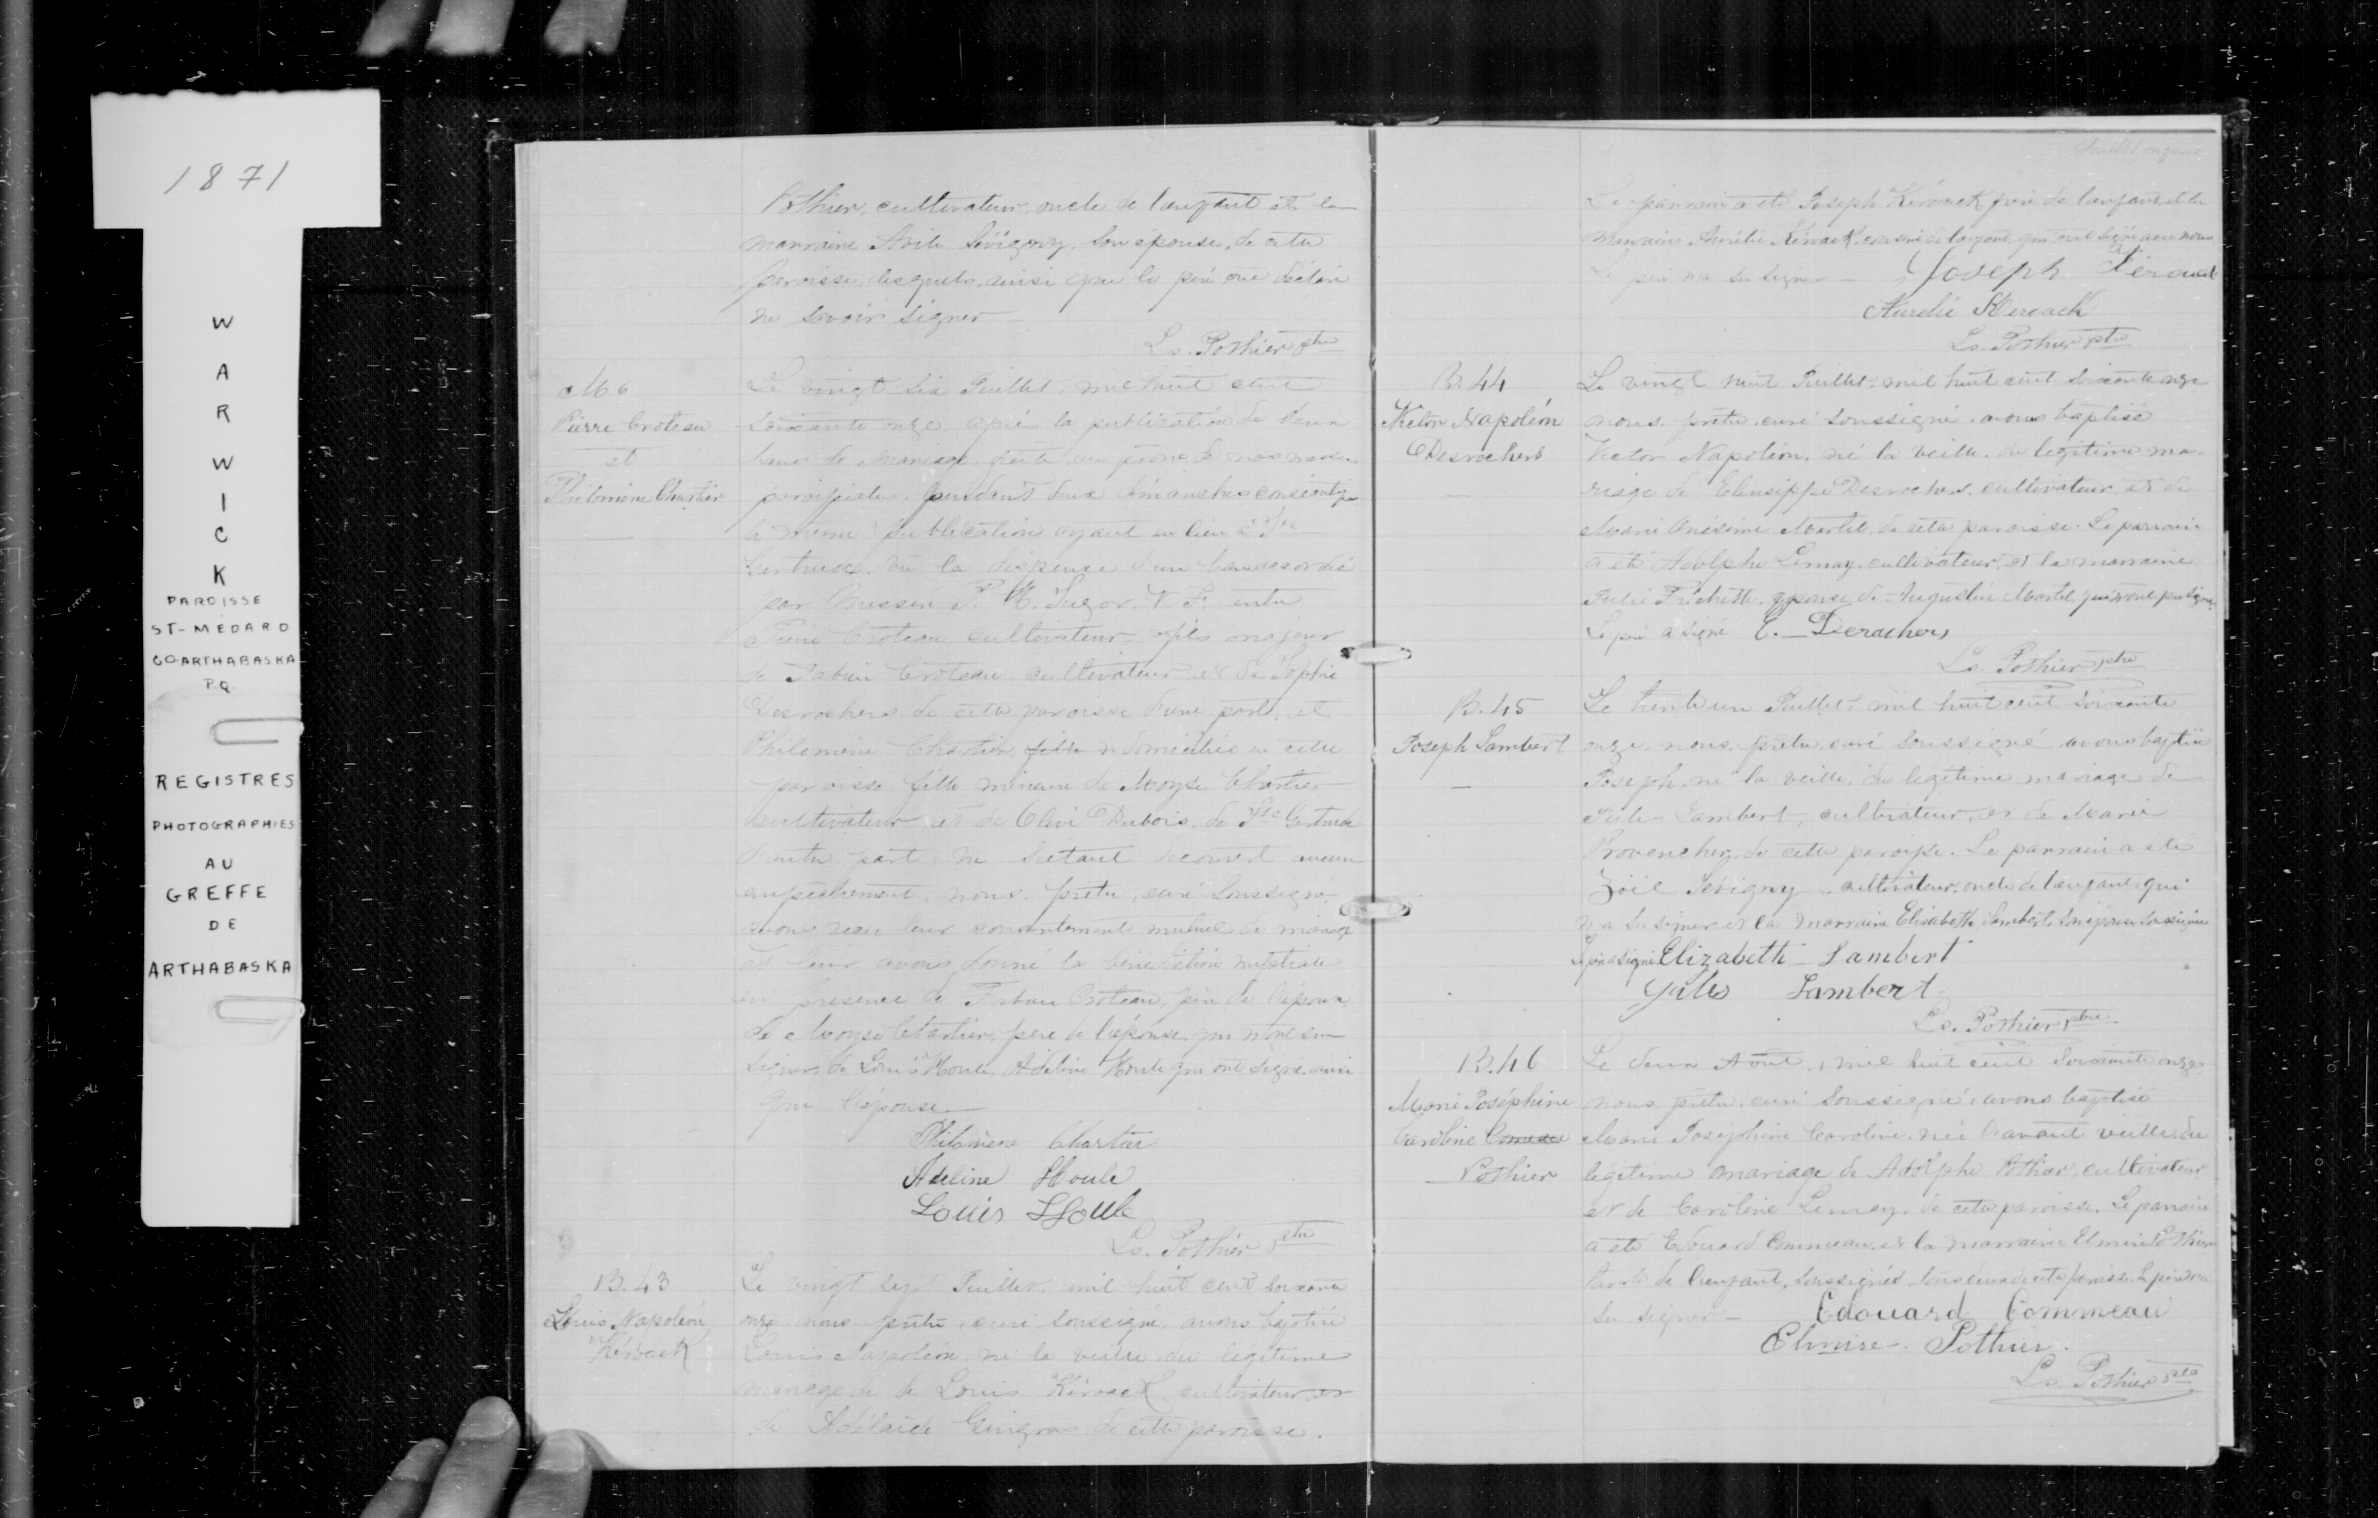 1871
WARWICK
PAROISSE
ST-MEDARD
CO-ARTHABASKA
P.Q.
REGISTRES
PHOTOGRAPHIES
AU
GREFFE
DE
ARTHABASKA
Pothier, cultivateur, oncle de l'enfant et la
marraine Sévigny, son épouse, de cette
paroisse, lesquels, ainsi que le père ont déclaré
ne savoir signer
Ls. Pothier ptre
M 6
Pierre Croteau
et
Philomène Chartier
Le vingt six Juillet, mil huit cent
soixante onze, après la publication de deux
bans de mariage faite au prône de nos messes
paroissiales, pendant deux dimanches consécutifs
la même publication ayant eu lieu à Ste
Gertrude, vu la dispense d'un ban accordé
par Messire P. H. Suzor, V. F. entre
Pierre Croteau cultivateur, fils majeur
de Croteau cultivateur et de Sophie
Desrochers de cette paroisse d'une part, et
Philomène Chartier, domiciliée en cette
paroisse fille mineure de Moyse Chartier
cultivateur et de Dubois, de Ste Gertrude
d'autre part, ne s'étant découvert aucun
empêchement, nous, prêtre, curé soussigné,
avons reçu leur consentement mutuel de mariage
et leur avons donné la bénédiction nuptiale
en présence de Croteau, père de l'époux,
de Moyse Chartier, père de l'épouse qui n'ont su
signer, de Louis Houle, Adeline Houle qui ont signé ainsi
que l'épouse
Philomène Chartier
Adeline Houle
Louis Houle
Ls. Pothier ptre
B. 43
Louis Napoléon
Kéroack
Le vingt sept Juillet, mil huit cent soixante
onze nous prêtre, curé soussigné, avons baptisé
Louis Napoléon, né la veille du légitime
mariage de Louis Kéroack, cultivateur, et
de Adélaïde Gingras de cette paroisse.
Feuillet onzième
Le parrain a été Joseph Kéroack de l'enfant et la
marraine Aurélie Kéroack, de l'enfant, qui ont signé avec nous
Le père n'a su signer - Joseph Kéroack
Aurélie Keroack
Ls. Pothier ptre
B. 44
Victor Napoléon
Desrochers
Le vingt huit Juillet, mil huit cent soixante onze
nous, prêtre, curé soussigné, avons baptisé
Victor Napoléon, né la veille, du légitime ma-
riage de Eleusippe Desrochers, cultivateur, et de
Marie Onésime Martel, de cette paroisse. Le parrain
a été Adolphe Lemay, cultivateur, et la marraine
Julie Fréchette, épouse de Augustin Martel, qui n'ont pu signer.
Le père a signé E. Derachers
Ls. Pothier ptre
B. 45
Joseph Lambert
Le trente un Juillet, mil huit cent soixante
onze, nous, prêtre, curé soussigné avons baptisé
Joseph, né la veille, du légitime mariage de
Jules Lambert, cultivateur, et de Marie
Provencher, de cette paroisse. Le parrain a été
Zoïl Sévigny, cultivateur, oncle de l'enfant, qui
n'a su signer et la marraine Elisabeth Lambert, son épouse soussignée
Le père a signé Elizabeth Lambert
Jules Lambert
Ls. Pothier ptre
B. 46
Marie Joséphine
Caroline Comeau
Pothier
Le deux Août, mil huit cent soixante onze
nous, prêtre, curé soussigné, avons baptisé
Marie Joséphine Caroline, née l'avant veille du
légitime mariage de Adolphe Pothier, cultivateur
et de Caroline Lemay, de cette paroisse. Le parrain
a été Edouard Commeau, et la marraine Elmire Pothier
tante de l'enfant, soussignés, tous deux de cette paroisse. Le père n'a
su signer - Edouard Commeau
Elmire Pothier.
Ls. Pothier ptre